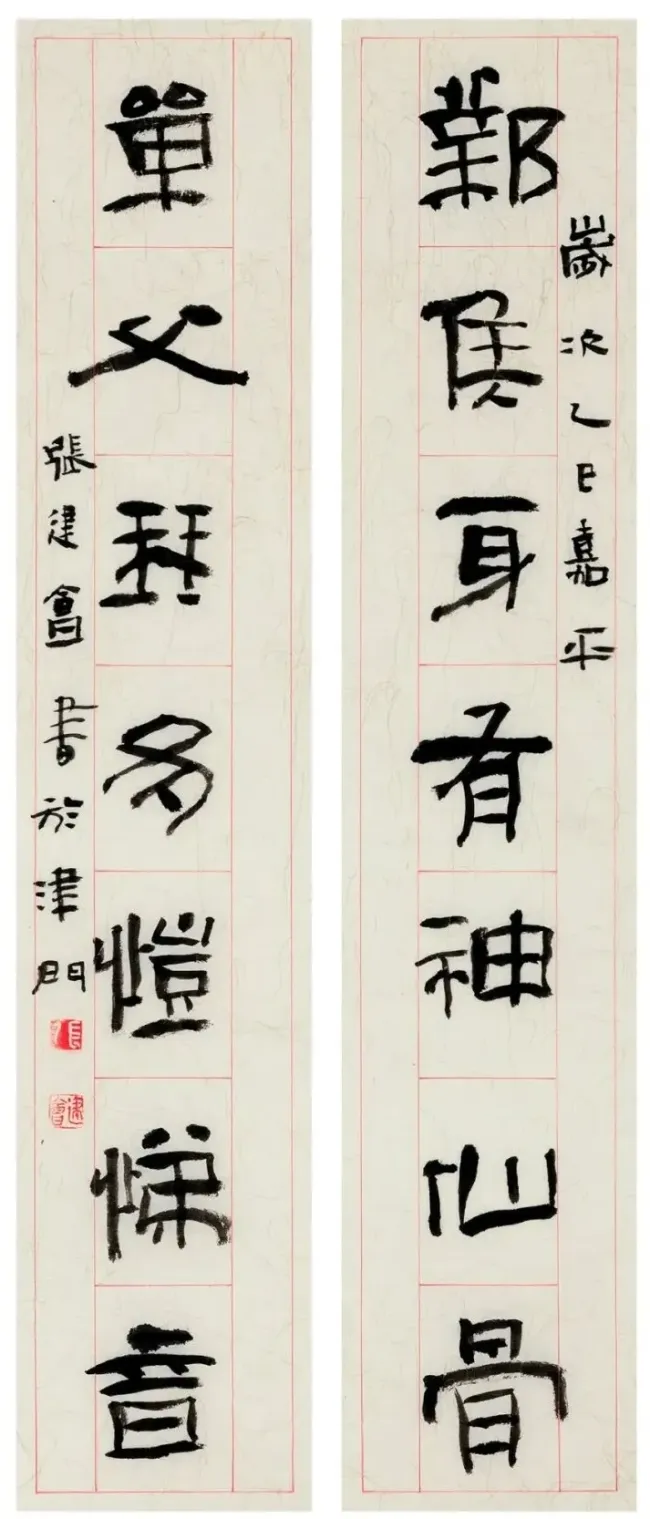 歲次乙巳嘉平
鄴侯身有神仙骨
單父琴多愷悌音
張建會書於津門
張
建會